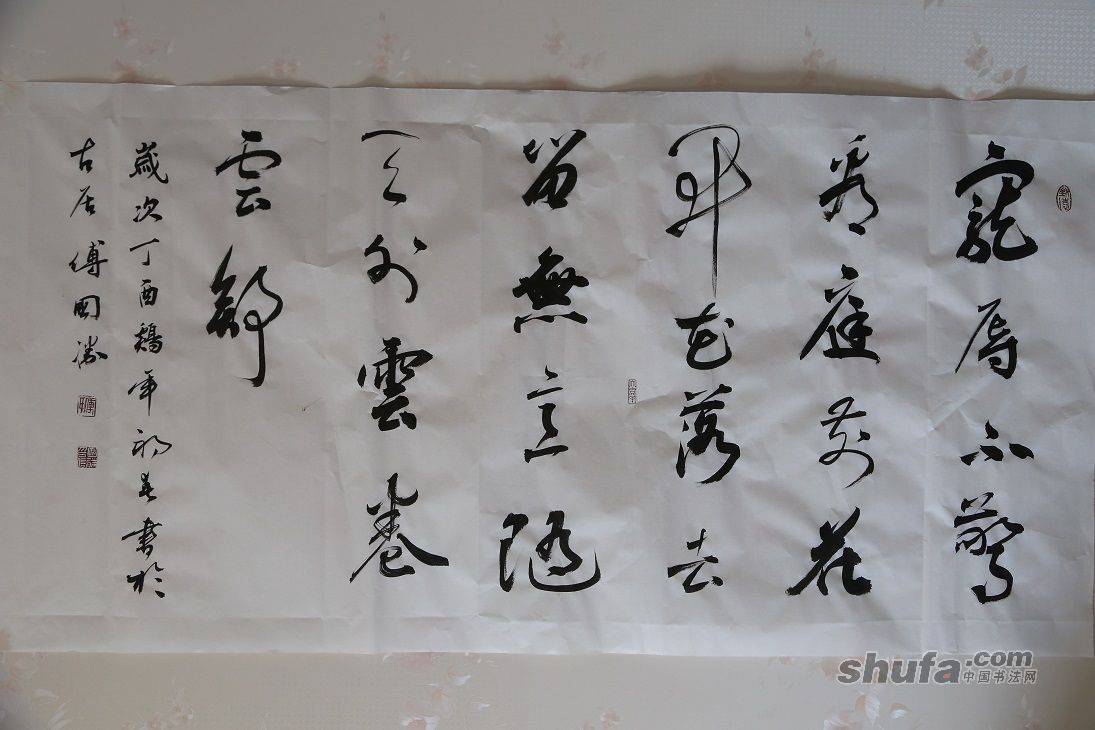 寵辱不驚
看庭前花
開花落去
留無意隨
天外雲卷
雲舒
歲次丁酉鷄年初春書於
古居傅國勝
shufa.com
中国书法网